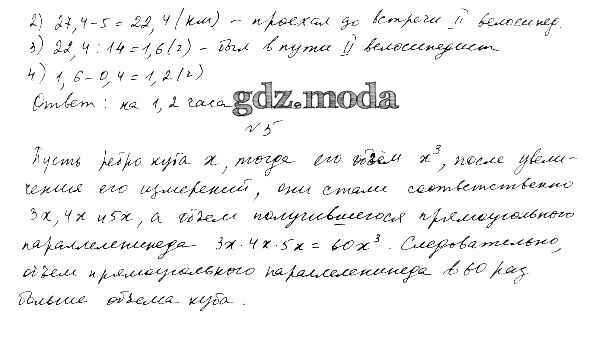 2) 27,4-5=22,4 (км) - проехал до встречи II велосипед.
3) 22,4:14=1,6 (г) - был в пути II велосипедист
4) 1,6-0,4=1,2 (г)
Ответ: на 1,2 часа
gdz.moda
№5
Пусть ребро куба x, тогда его объём x³, после увели-
чения его измерений, они стали соответственно
3x, 4x и 5x, а объем получившегося прямоугольного
параллелепипеда 3x·4x·5x=60x³. Следовательно,
объем прямоугольного параллелепипеда в 60 раз
больше объема куба.